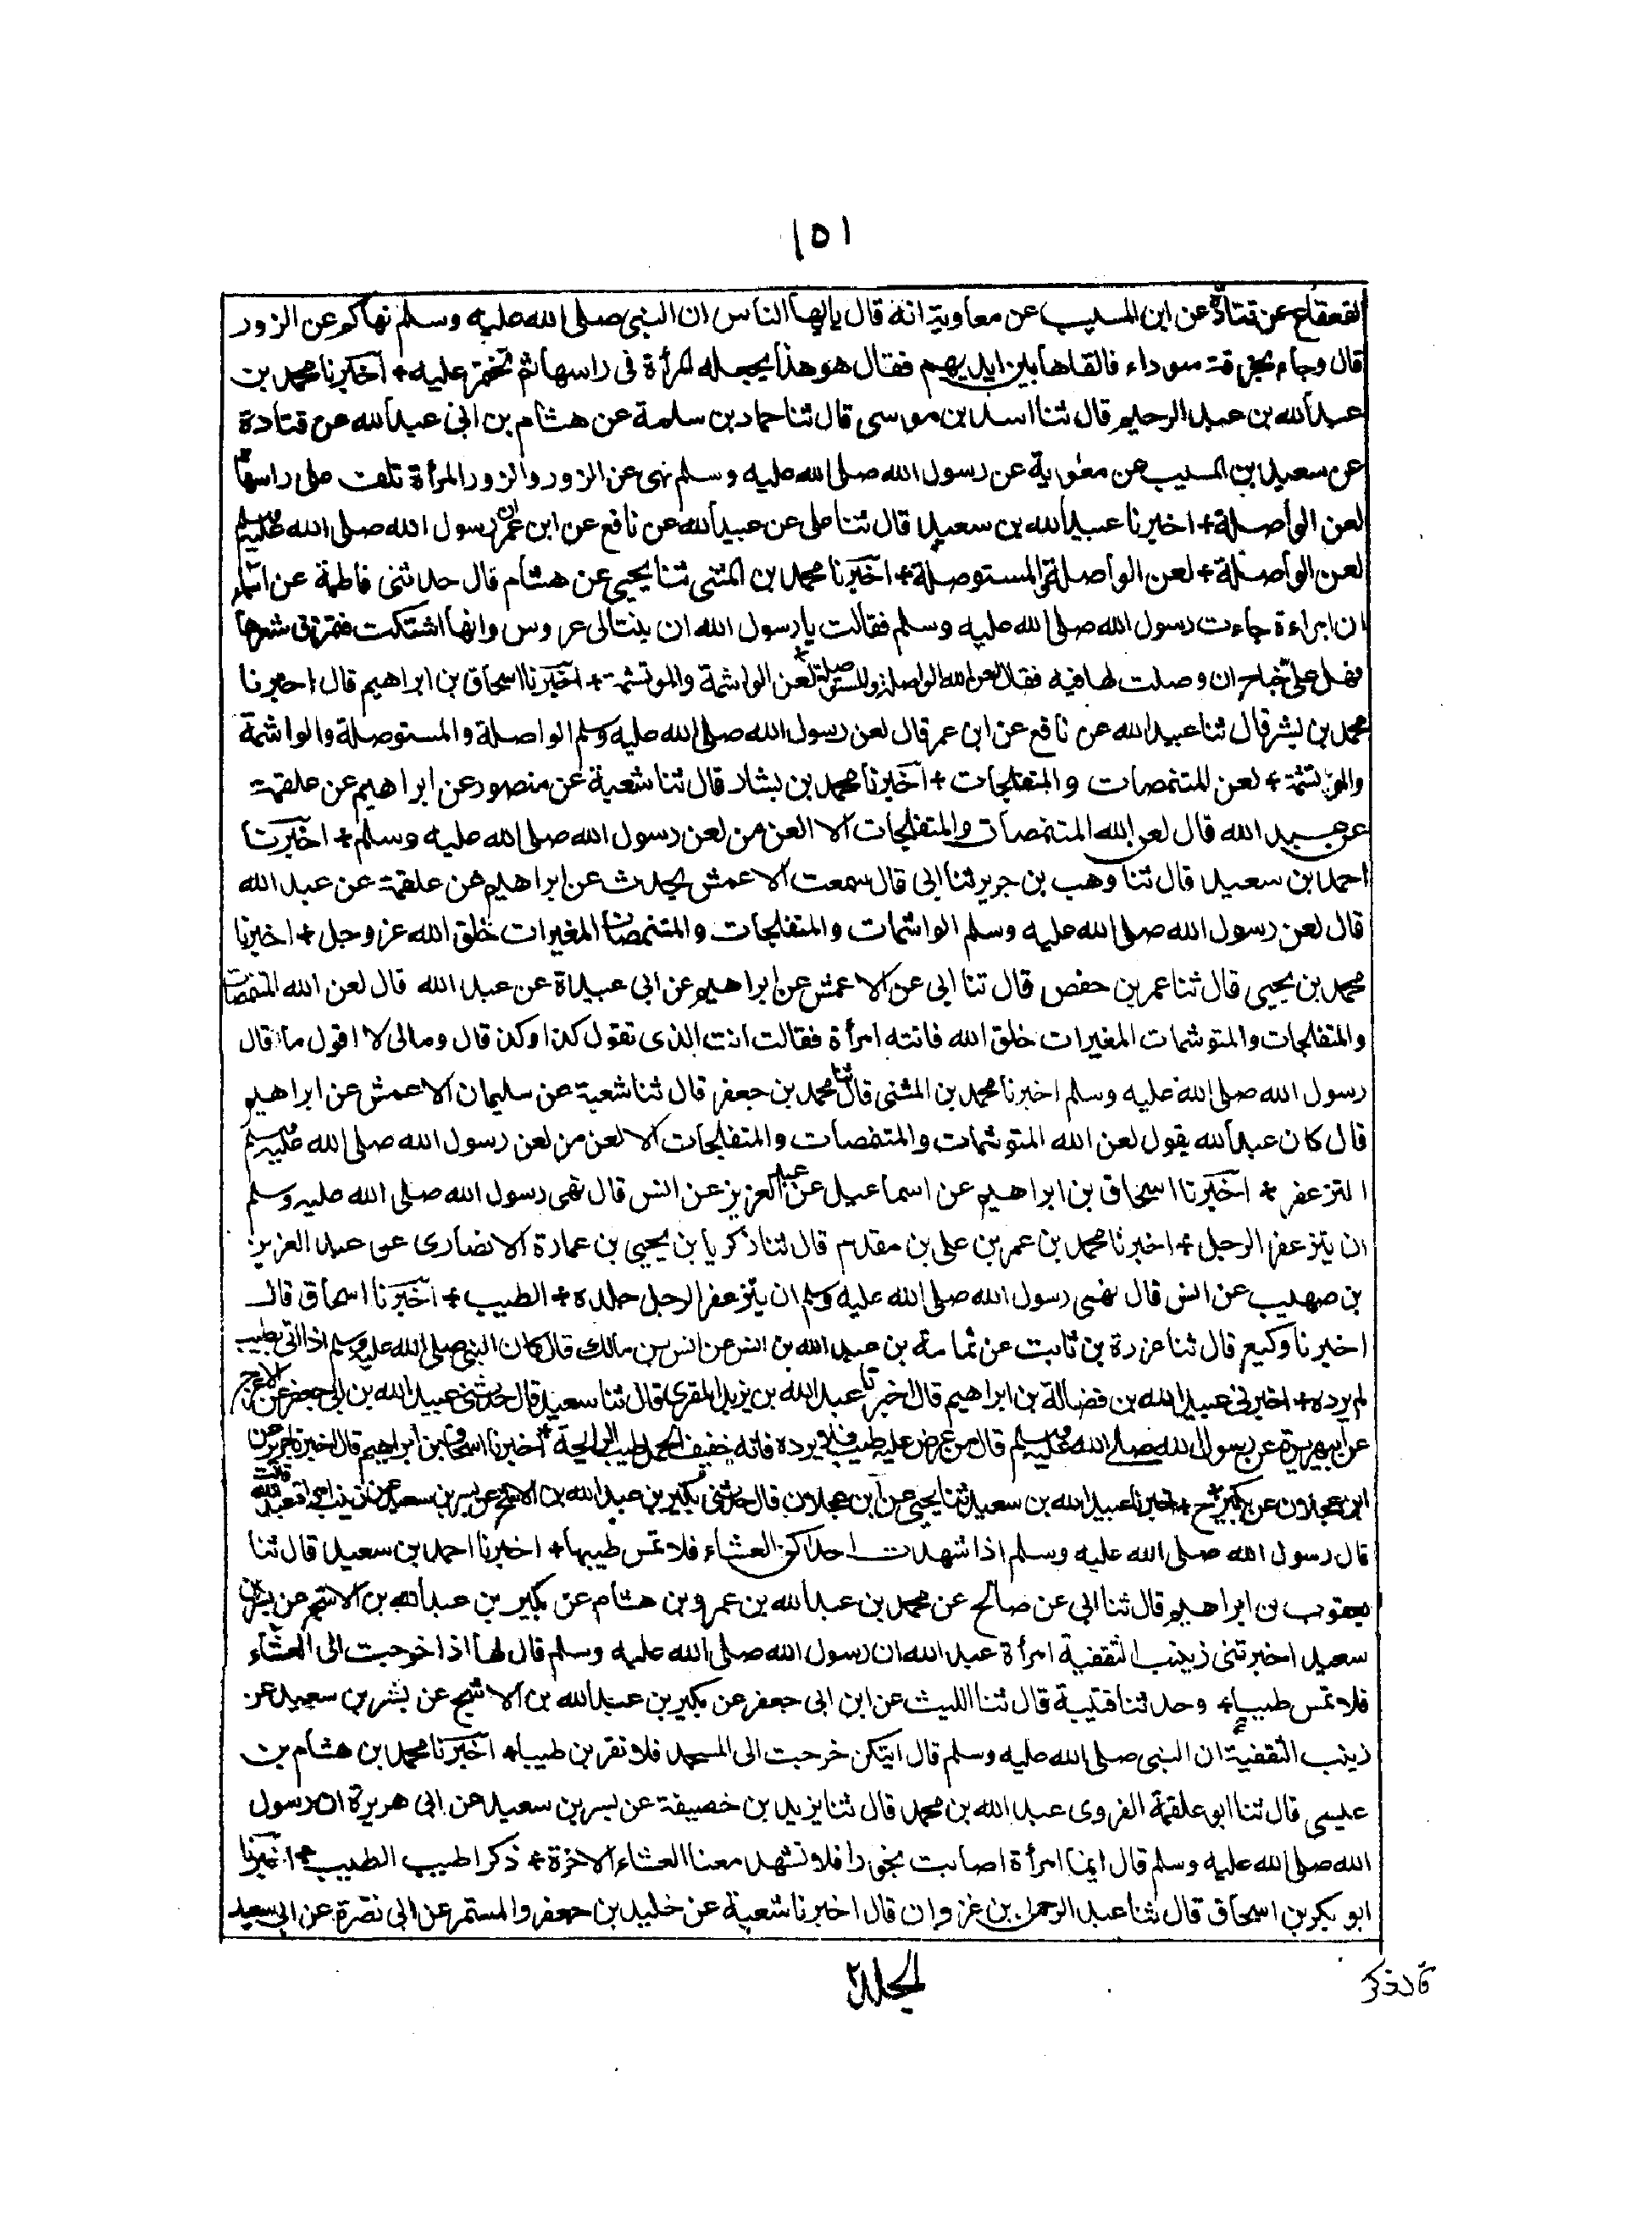 ١٥١
القعقاع عن قتادة عن ابن المسيب عن معاوية انه قال يا ايها الناس ان النبى صلى الله عليه وسلم نهاكم عن الزور
قال وجاء بخرقة سوداء فالقاها بين ايديهم فقال هو هذا يجعله المرأة فى راسها ثم تختمر عليه + اخبرنا محمد بن
عبد الله بن عبد الرحيم قال ثنا اسد بن موسى قال ثنا حماد بن سلمة عن هشام بن ابى عبد الله عن قتادة
عن سعيد بن المسيب عن معوية عن رسول الله صلى الله عليه وسلم نهى عن الزور والزور المرأة تلف على راسها
لعن الواصلة + اخبرنا عبيد الله بن سعيد قال ثنا على عن عبيد الله عن نافع عن ابن عمر ان رسول الله صلى الله عليه وسلم
لعن الواصلة + لعن الواصلة والمستوصلة + اخبرنا محمد بن المثنى ثنا يحيى عن هشام قال حدثنى فاطمة عن اسماء
ان امراءة جاءت رسول الله صلى الله عليه وسلم فقالت يا رسول الله ان بنتا لى عروس وانها اشتكت فتمزق شعرها
فهل على جناح ان وصلت لها فيه فقال لعن الله الواصلة والمستوصلة + لعن الواشمة والموتشمة + اخبرنا اسحاق بن ابراهيم قال اخبرنا
محمد بن بشر قال ثنا عبيد الله عن نافع عن ابن عمر قال لعن رسول الله صلى الله عليه وسلم الواصلة والمستوصلة والواشمة
والموتشمة + لعن المتنمصات والمتفلجات + اخبرنا محمد بن بشار قال ثنا شعبة عن منصور عن ابراهيم عن علقمة
عن عبد الله قال لعن الله المتنمصات والمتفلجات الا العن من لعن رسول الله صلى الله عليه وسلم + اخبرنا
احمد بن سعيد قال ثنا وهب بن جرير ثنا ابى قال سمعت الاعمش يحدث عن ابراهيم عن علقمة عن عبد الله
قال لعن رسول الله صلى الله عليه وسلم الواشمات والمتفلجات والمتنمصات المغيرات خلق الله عز وجل + اخبرنا
محمد بن يحيى قال ثنا عمر بن حفص قال ثنا ابى عن الاعمش عن ابراهيم عن ابى عبيدة عن عبد الله قال لعن الله المتنمصات
والمتفلجات والمتوشمات المغيرات خلق الله فاتته امرأة فقالت انت الذى تقول كذا وكذ قال ومالى لا اقول ما قال
رسول الله صلى الله عليه وسلم اخبرنا محمد بن المثنى قال ثنا محمد بن جعفر قال ثنا شعبة عن سليمان الاعمش عن ابراهيم
قال كان عبد الله يقول لعن الله المتوشمات والمتنمصات والمتفلجات الا لعن من لعن رسول الله صلى الله عليه وسلم
التزعفر + اخبرنا اسحاق بن ابراهيم عن اسماعيل عن عبد العزيز عن انس قال نهى رسول الله صلى الله عليه وسلم
ان يتزعفر الرجل + اخبرنا محمد بن عمر بن على بن مقدم قال ثنا زكريا بن يحيى بن عمارة الانصارى عن عبد العزيز
بن صهيب عن انس قال نهى رسول الله صلى الله عليه وسلم ان يتزعفر الرجل جلده + الطيب + اخبرنا اسحاق قال
اخبرنا وكيع قال ثنا عزرة بن ثابت عن ثمامة بن عبد الله بن انس عن انس بن مالك قال كان النبى صلى الله عليه وسلم اذا اتى بطيب
لم يرده + اخبرنى عبيد الله بن فضالة بن ابراهيم قال اخبرنا عبد الله بن يزيد المقرى قال ثنا سعيد قال حدثنى عبيد الله بن ابى جعفر عن الاعرج
عن ابى هريرة عن رسول الله صلى الله عليه وسلم قال من عرض عليه طيب فلا يرده فانه خفيف المحمل طيب الرائحة + اخبرنا اسحاق بن ابراهيم قال اخبرنا جرير عن
ابن عجلان عن بكير ح + اخبرنا عبيد الله بن سعيد ثنا يحيى عن ابن عجلان قال حدثنى بكير بن عبد الله بن الاشج عن بسر بن سعيد عن زينب امرأة عبد الله قالت
قال رسول الله صلى الله عليه وسلم اذا شهدت احداكن العشاء فلا تمس طيبها + اخبرنا احمد بن سعيد قال ثنا
يعقوب بن ابراهيم قال ثنا ابى عن صالح عن محمد بن عبد الله بن عمرو بن هشام عن بكير بن عبد الله بن الاشج عن بسر بن
سعيد اخبرتنى زينب الثقفية امرأة عبد الله ان رسول الله صلى الله عليه وسلم قال لها اذا خرجت الى العشاء
فلا تمس طيبا + وحدثنا قتيبة قال ثنا الليث عن ابن ابى جعفر عن بكير بن عبد الله بن الاشج عن بشر بن سعيد عن
زينب الثقفية ان النبى صلى الله عليه وسلم قال ايتكن خرجت الى المسجد فلا تقربن طيبا + اخبرنا محمد بن هشام بن
عليسى قال ثنا ابو علقمة الفروى عبد الله بن محمد قال ثنا يزيد بن خصيفة عن بسر بن سعيد عن ابى هريرة ان رسول
الله صلى الله عليه وسلم قال ايما امرأة اصابت بخورا فلا تشهد معنا العشاء الاخرة + ذكر اطيب الطيب + اخبرنا
ابو بكر بن اسحاق قال ثنا عبد الرحمن بن غزوان قال اخبرنا شعبة عن خليد بن جعفر والمستمر عن ابى نضرة عن ابى سعيد
قال ذكر
المجلد ٢